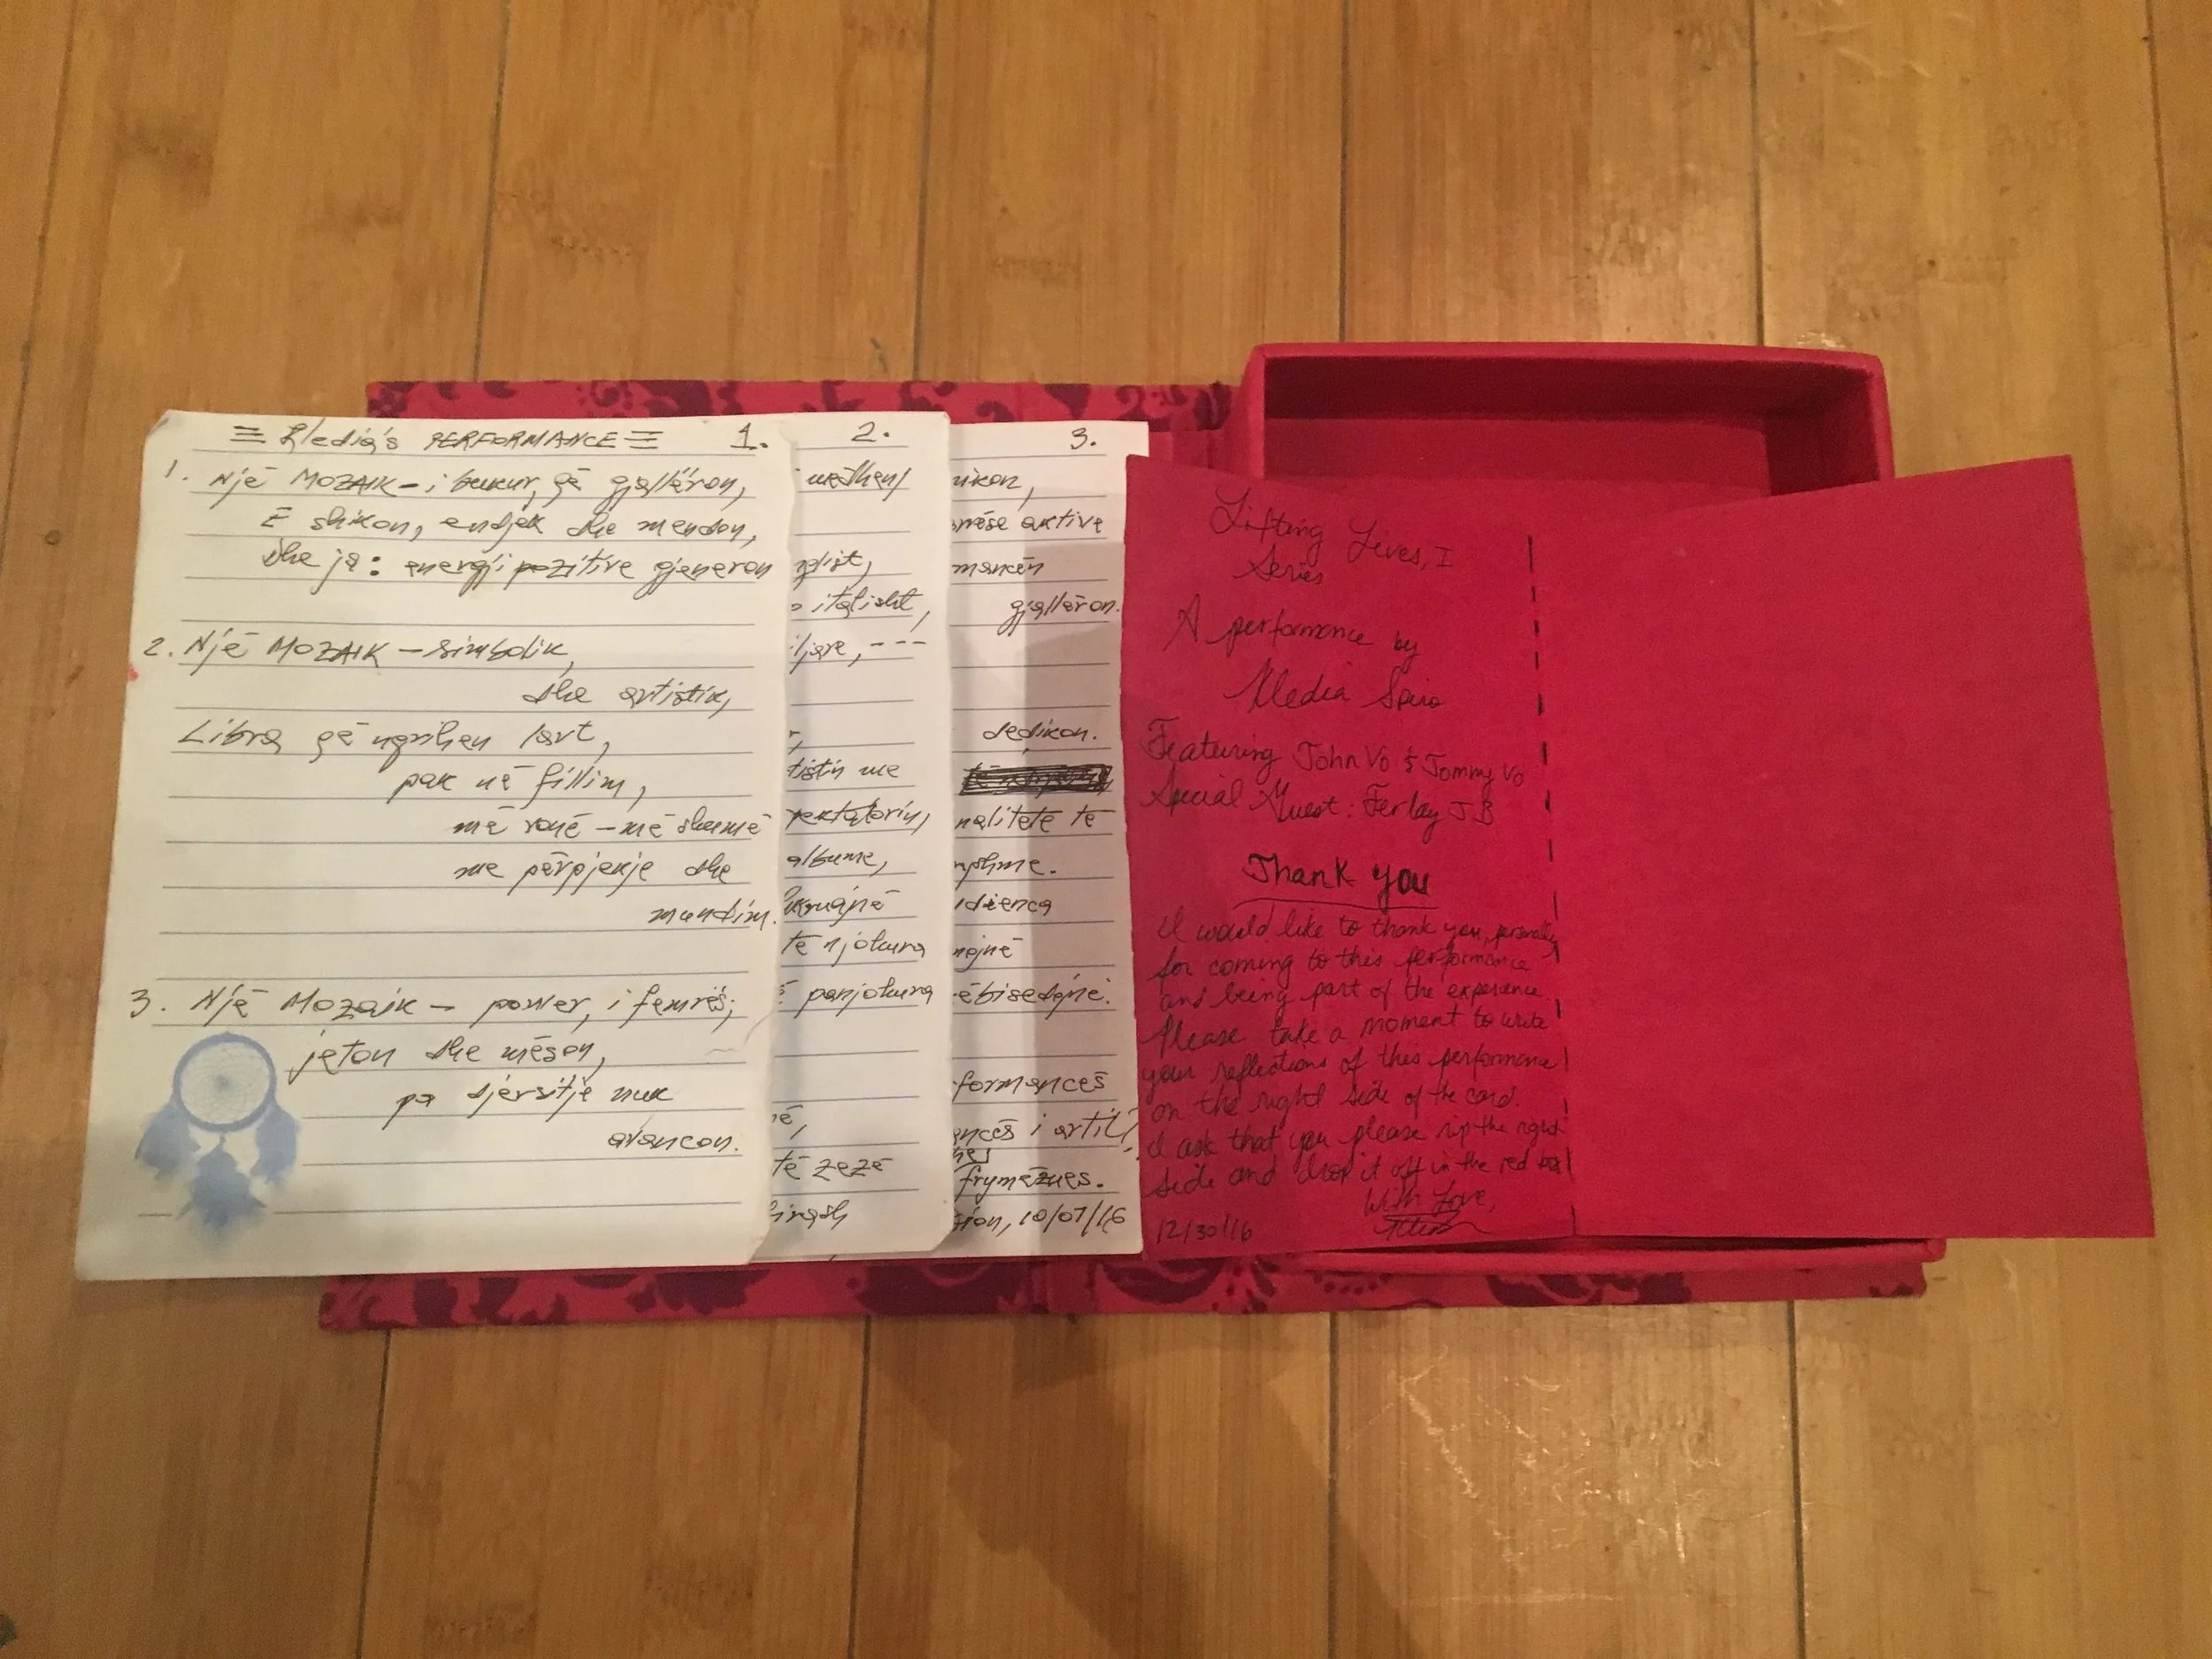 Kledia's PERFORMANCE 1.
1. Një MOZAIK – i bukur, që gjallëron,
E shikon, endjek dhe mendon,
dhe ja: energji pozitive gjeneron
2. Një MOZAIK – simbolik,
dhe artistik,
Libra që ngrihen lart,
pak në fillim,
më vonë – më shumë
me përpjekje dhe
mundim.
3. Një Mozaik – power, i femrës;
jeton dhe mëson,
pa djersitje nuk
avancon.
2.
italisht,
tistin me
albume,
të njohura
panjohura
të zezë
3.
aktive
gjallëron.
dedikon.
nalitete të
formancës
i artit
frymëzues.
10/07/16
Lifting Lives, I
Series
A performance by
Kledia Spiro
Featuring John Vo & Tommy Vo
Special Guest: Ferlay J B
Thank you
I would like to thank you, personally
for coming to this performance
and being part of the experience.
Please take a moment to write
your reflections of this performance
on the right side of the card.
I ask that you please rip the right
side and drop it off in the red box
With Love,
12/30/16